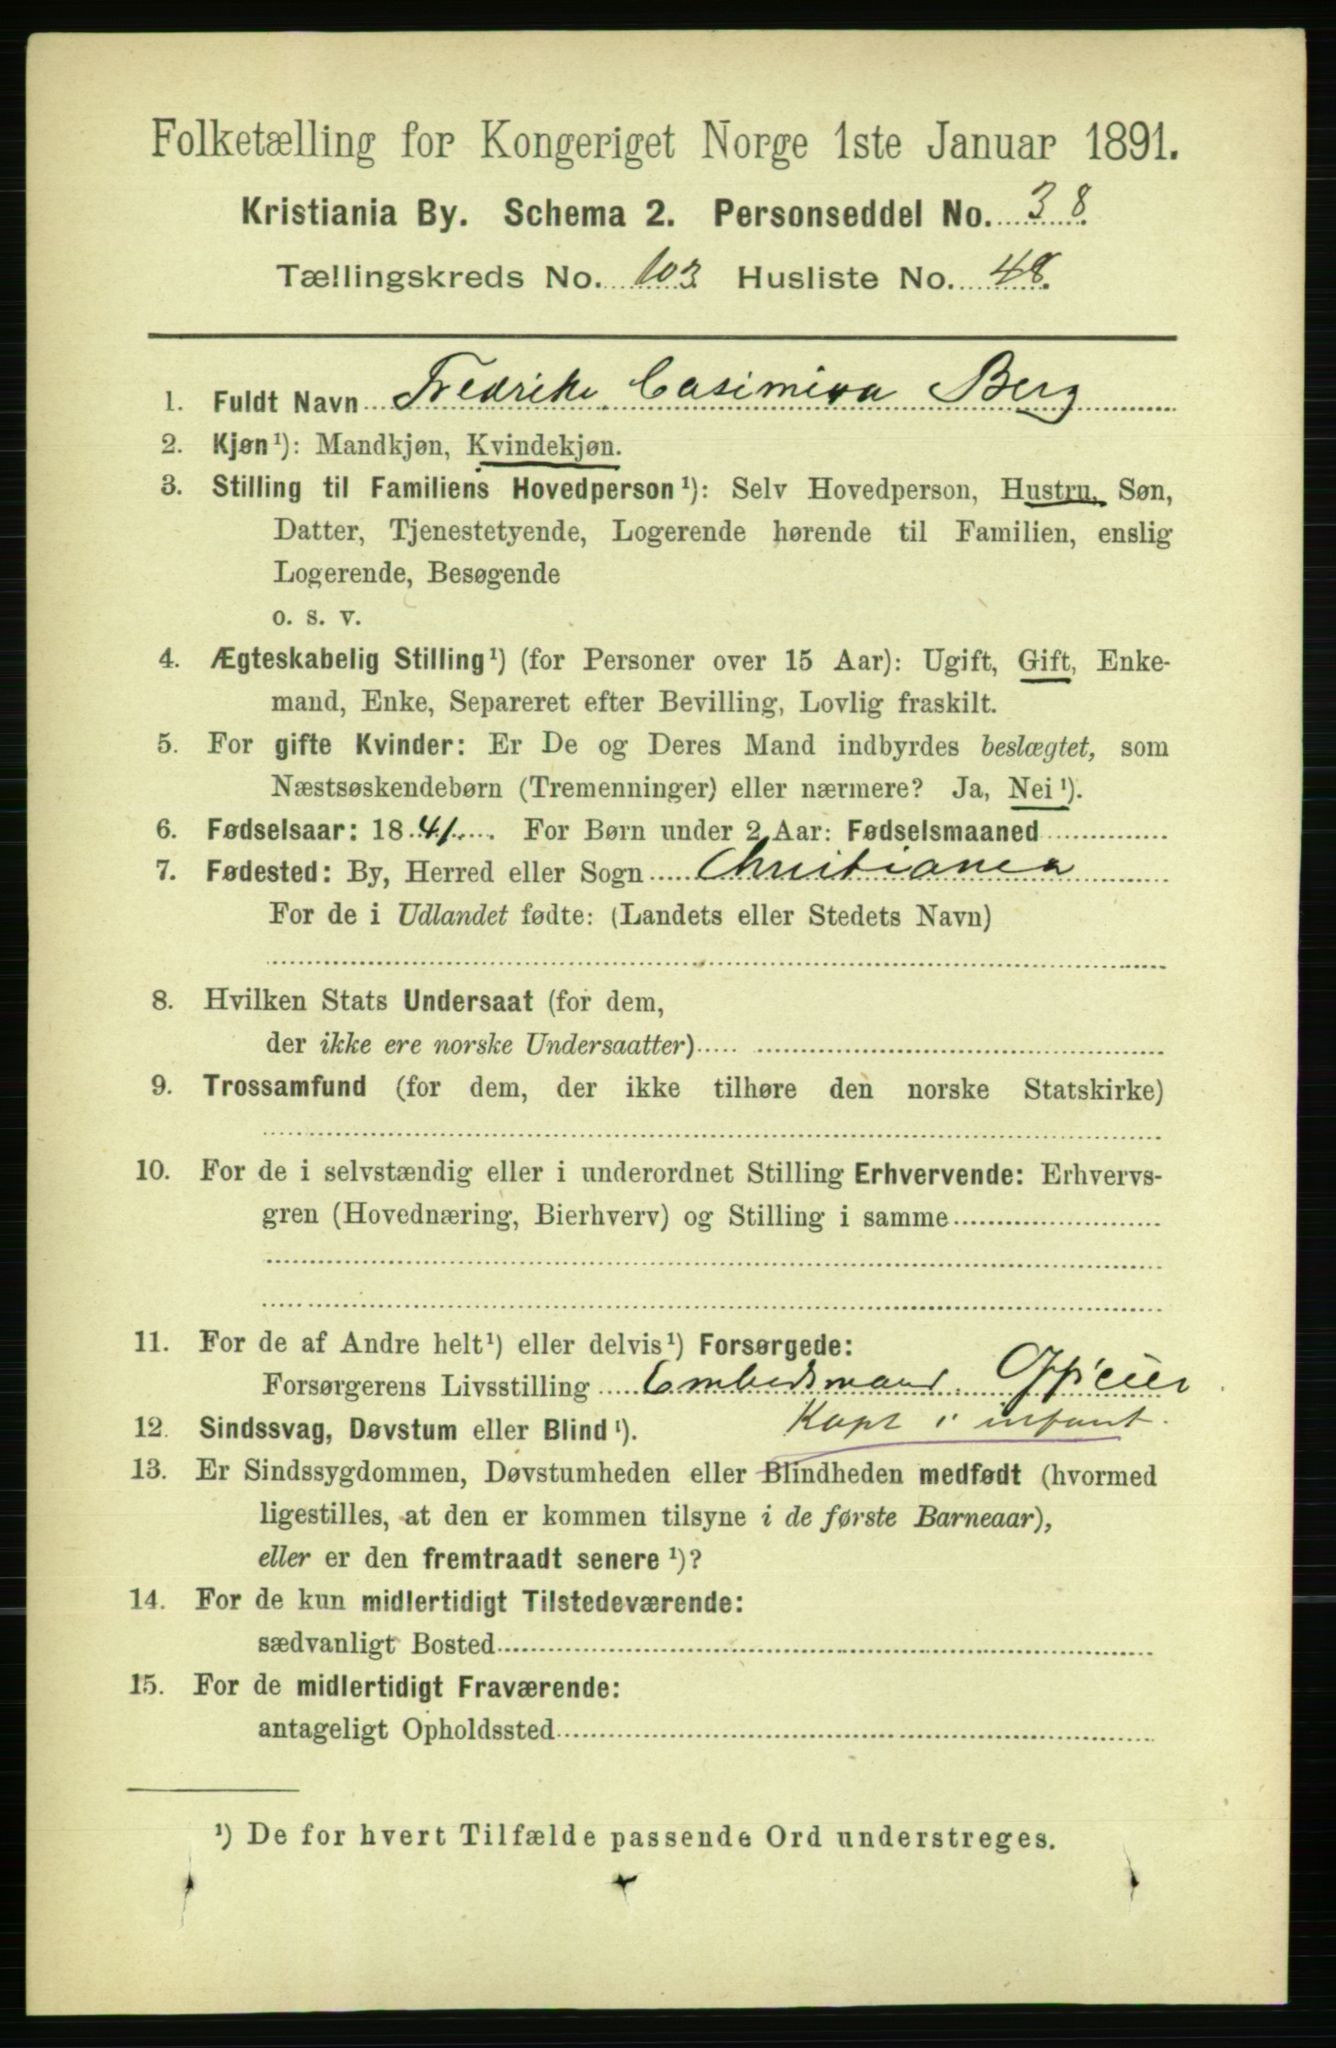 Folketælling for Kongeriget Norge 1ste Januar 1891.
Kristiania By. Schema 2. Personseddel No. 38
Tællingskreds No. 103 Husliste No. 48.
1. Fuldt Navn Fredrike Casimira Berg
2. Kjøn¹): Mandkjøn, Kvindekjøn.
3. Stilling til Familiens Hovedperson¹): Selv Hovedperson, Hustru, Søn,
Datter, Tjenestetyende, Logerende hørende til Familien, enslig
Logerende, Besøgende
o. s. v.
4. Ægteskabelig Stilling¹) (for Personer over 15 Aar): Ugift, Gift, Enke-
mand, Enke, Separeret efter Bevilling, Lovlig fraskilt.
5. For gifte Kvinder: Er De og Deres Mand indbyrdes beslægtet, som
Næstsøskendebørn (Tremenninger) eller nærmere? Ja, Nei¹).
6. Fødselsaar: 1841. For Børn under 2 Aar: Fødselsmaaned
7. Fødested: By, Herred eller Sogn Christiania
For de i Udlandet fødte: (Landets eller Stedets Navn)
8. Hvilken Stats Undersaat (for dem,
der ikke ere norske Undersaatter)
9. Trossamfund (for dem, der ikke tilhøre den norske Statskirke)
10. For de i selvstændig eller i underordnet Stilling Erhvervende: Erhvervs-
gren (Hovednæring, Bierhverv) og Stilling i samme
11. For de af Andre helt¹) eller delvis¹) Forsørgede:
Forsørgerens Livsstilling Embedsmand. Officier
Kapt i infant.
12. Sindssvag, Døvstum eller Blind¹).
13. Er Sindssygdommen, Døvstumheden eller Blindheden medfødt (hvormed
ligestilles, at den er kommen tilsyne i de første Barneaar),
eller er den fremtraadt senere¹)?
14. For de kun midlertidigt Tilstedeværende:
sædvanligt Bosted
15. For de midlertidigt Fraværende:
antageligt Opholdssted
¹) De for hvert Tilfælde passende Ord understreges.